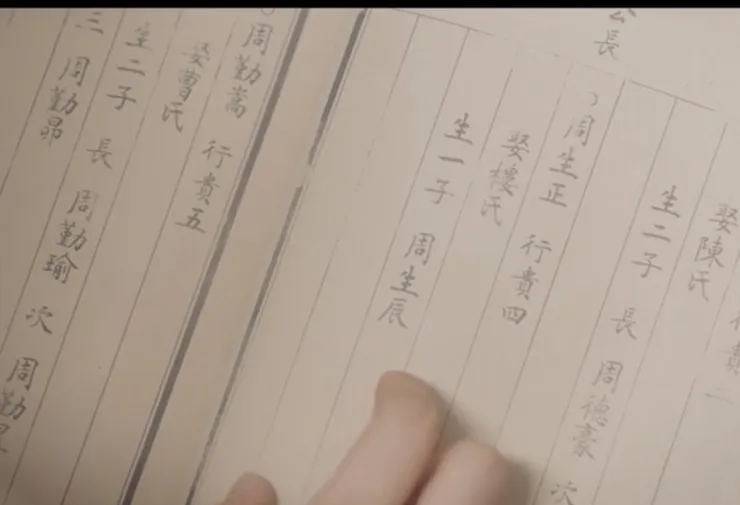 公長
娶陳氏 行貴二
生二子 長 周德豪 次
周生正 行貴四
娶樓氏
生一子 周生辰
周勤嵩 行貴五
娶曹氏
生二子 長 周勤瑜 次 周勤
三 周勤昴